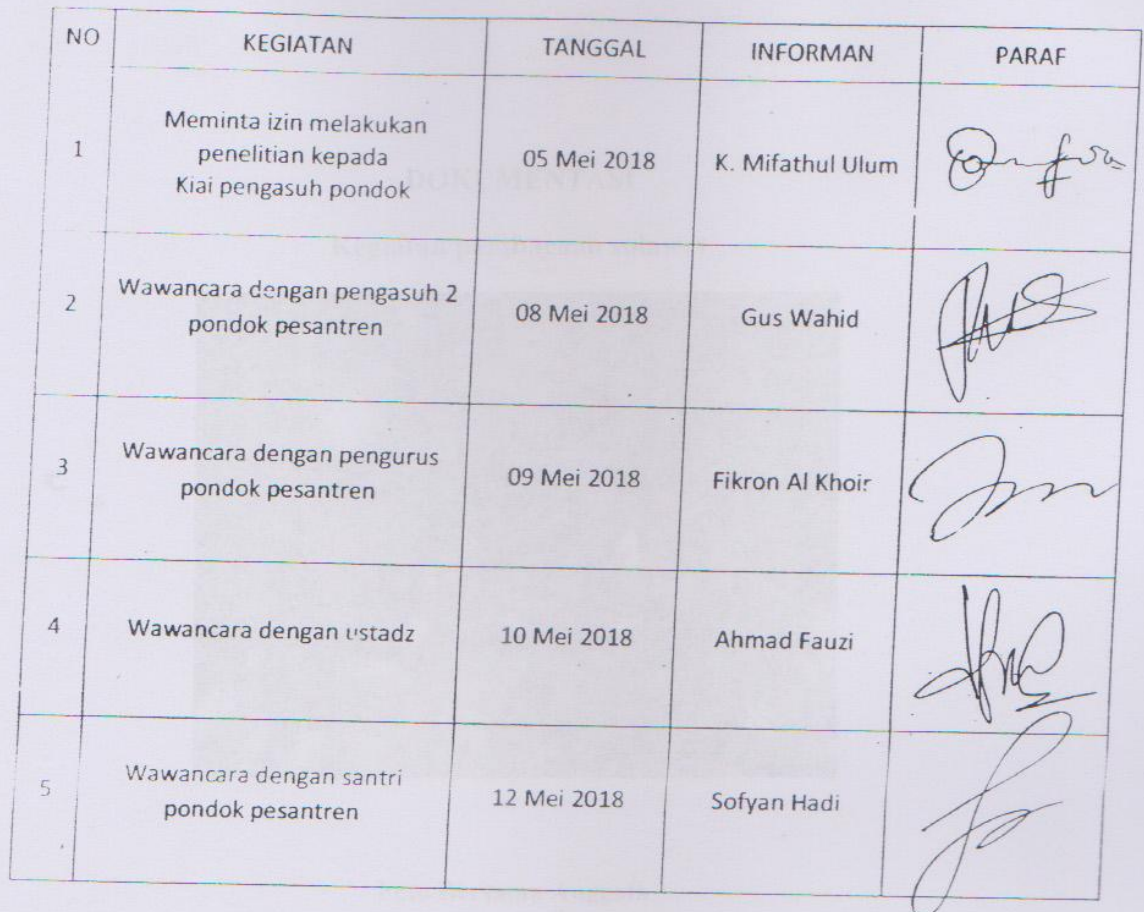 NO KEGIATAN TANGGAL INFORMAN PARAF
1 Meminta izin melakukan
penelitian kepada
Kiai pengasuh pondok 05 Mei 2018 K. Mifathul Ulum
2 Wawancara dengan pengasuh 2
pondok pesantren 08 Mei 2018 Gus Wahid
3 Wawancara dengan pengurus
pondok pesantren 09 Mei 2018 Fikron Al Khoir
4 Wawancara dengan ustadz 10 Mei 2018 Ahmad Fauzi
5 Wawancara dengan santri
pondok pesantren 12 Mei 2018 Sofyan Hadi